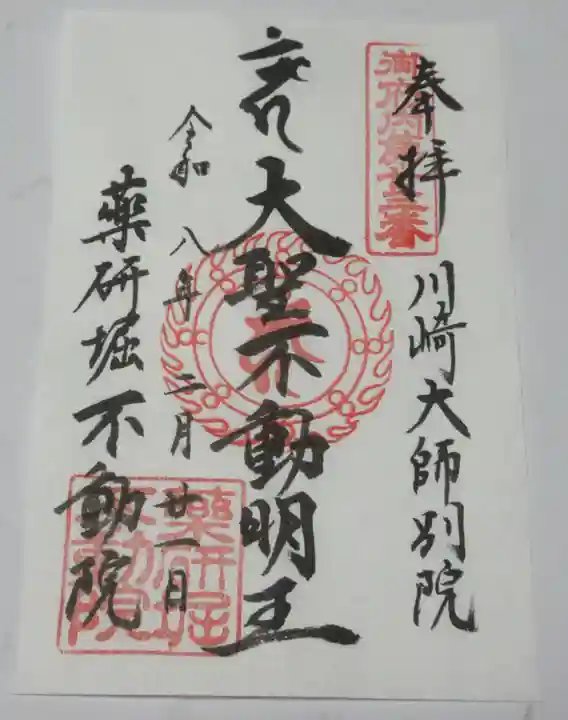 奉拝
川崎大師別院
大聖不動明王
令和八年二月廿一日
薬研堀不動院
薬研堀
不動院